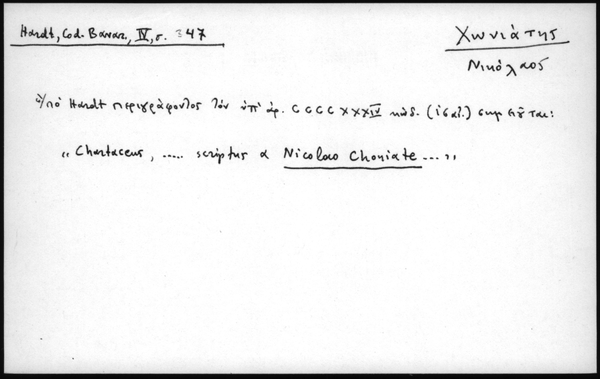 Hardt, Cod. Bavar., IV, σ. 347
Χωνιάτης
Νικόλαος
Ὑπό Hardt περιγράφοντος τόν ὑπ' ἀρ. CCCCXXXIV κώδ. (ις αἰ.) σημειοῦται:
„ Chartaceus, ..... scriptus a Nicolao Choniate ... „